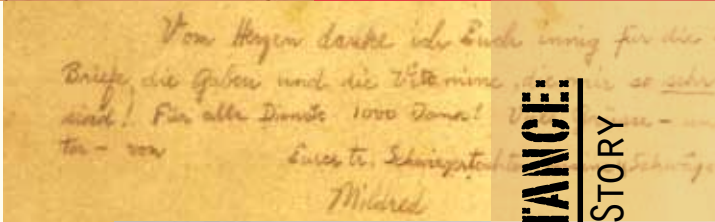 Vom Herzen danke ich Euch innig für die
Briefe, die Gaben und die Vitamine, die mir so sehr
sind! Für alle Dienste 1000 Dank! Viele Grüsse –
ter – von Eurer tr. Schwiegertochter
Mildred
TANCE:
STORY